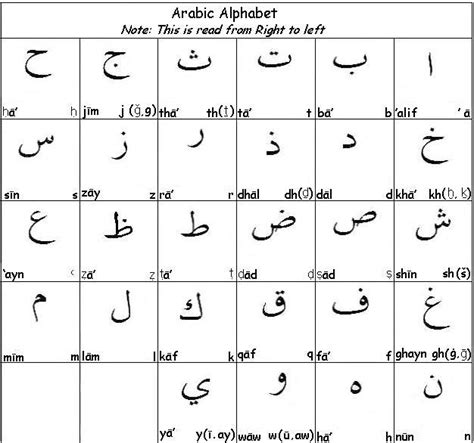 Arabic Alphabet
Note: This is read from Right to left
ا ب ت ث ج ح
ḥā’ ḥ jīm j (ğ,g) thā’ th(ṯ) tā’ t bā’ b ’alif ’ ā
خ د ذ ر ز س
sīn s zāy z rā’ r dhāl dh(ḏ) dāl d khā’ kh(ḫ, ḵ)
ش ص ض ط ظ ع
‘ayn ‘ ẓā’ ẓ ṭā’ ṭ ḍād ḍ ṣād ṣ shīn sh(š)
غ ف ق ك ل م
mīm m lām l kāf k qāf q fā’ f ghayn gh(ġ,ğ)
ن ه و ي
yā’ y(ī,ay) wāw w(ū,aw) hā’ h nūn n